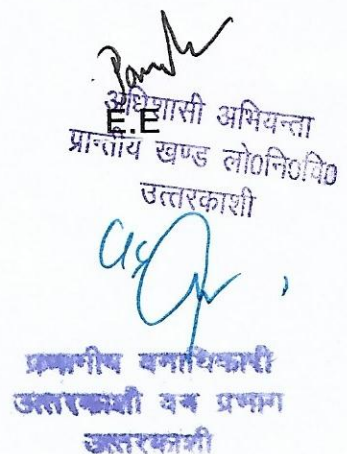 अधिशासी अभियन्ता
E.E
प्रान्तीय खण्ड लो०नि०वि०
उत्तरकाशी
प्रभागीय वनाधिकारी
उत्तरकाशी वन प्रभाग
उत्तरकाशी